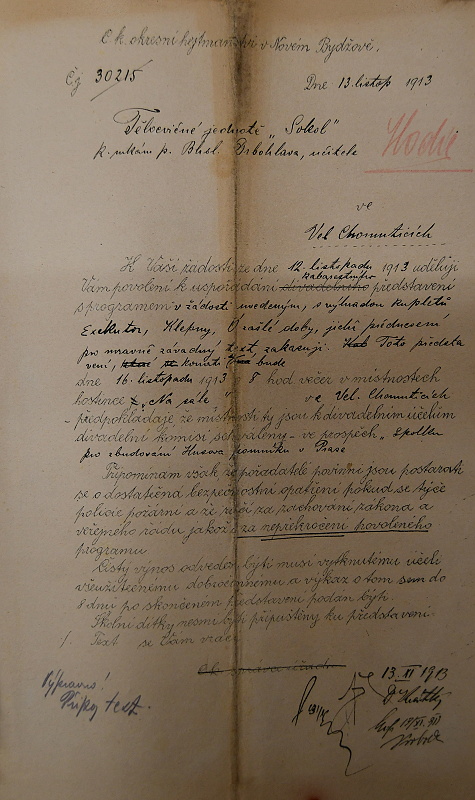 C. k. okresní hejtmanství v Novém Bydžově.
Čj 30215
Dne 13. listop 1913
Tělocvičné jednotě „Sokol"
k rukám p. Drbohlava, učitele
ve
Vel Chomuticích
K Vaší žádosti ze dne 12. listopadu 1913 uděluji
kabaretního
Vám povolení k uspořádání divadelního představení
s programem v žádosti uvedeným, s výhradou kupletů
Exekutor, Klepny, O zašlé doby, jichž přednesení
pro mravně závadný text zakazuji. Toto předsta
vení, konati bude
dne 16. listopadu 1913 o 8 hod večer v místnostech
hostince „Na sále" ve Vel. Chomuticích
– předpokládaje že místnosti ty jsou k divadelním účelům
divadelní komisí schváleny – ve prospěch „Spolku
pro zbudování Husova pomníku v Praze
Připomínám však, že pořadatelé povinni jsou postarati
se o dostatečná bezpečnostní opatření pokud se týče
policie požární a že ručí za zachování zákona a
veřejného řádu jakož i za nepřekročení povoleného
programu.
Čistý výnos odveden býti musí vytknutému účeli
všeužitečnému dobročinnému a výkaz o tom sem do
8 dnů po skončeném představení podán býti.
Školní dítky nesmí býti připuštěny ku představení.
/. Text se Vám vrací.
C. k. správa
Vypraveno!
Připoj text.
13. XI 1913